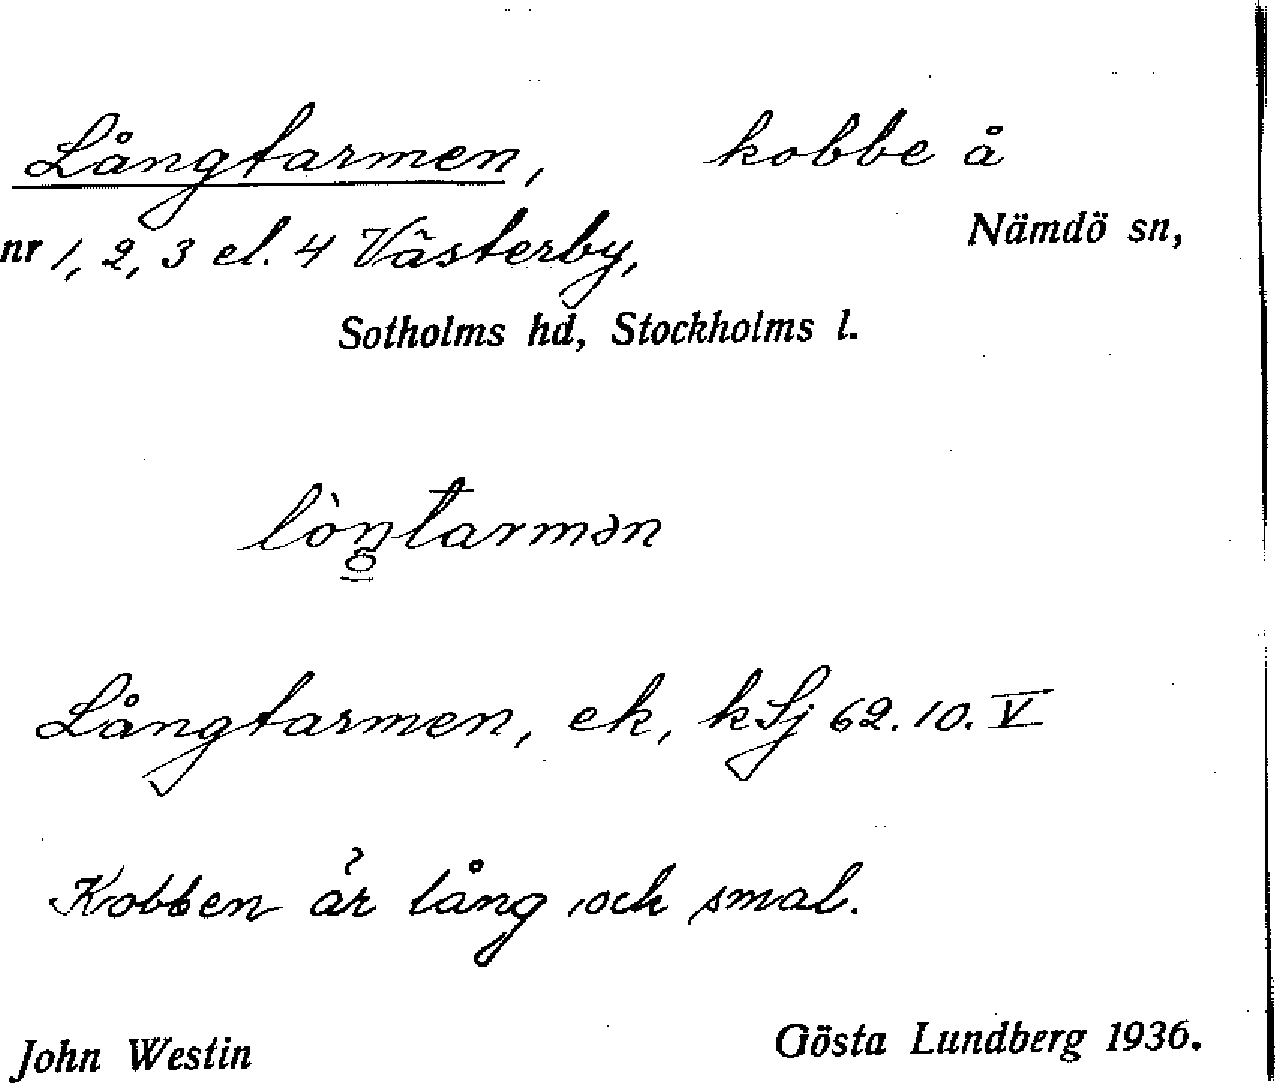 Långtarmen, kobbe å
nr 1, 2, 3 el. 4 Västerby, Nämdö sn,
Sotholms hd, Stockholms l.
lòŋtarmən
Långtarmen, ek, kSj 62.10.V
Kobben är lång och smal.
John Westin Gösta Lundberg 1936.